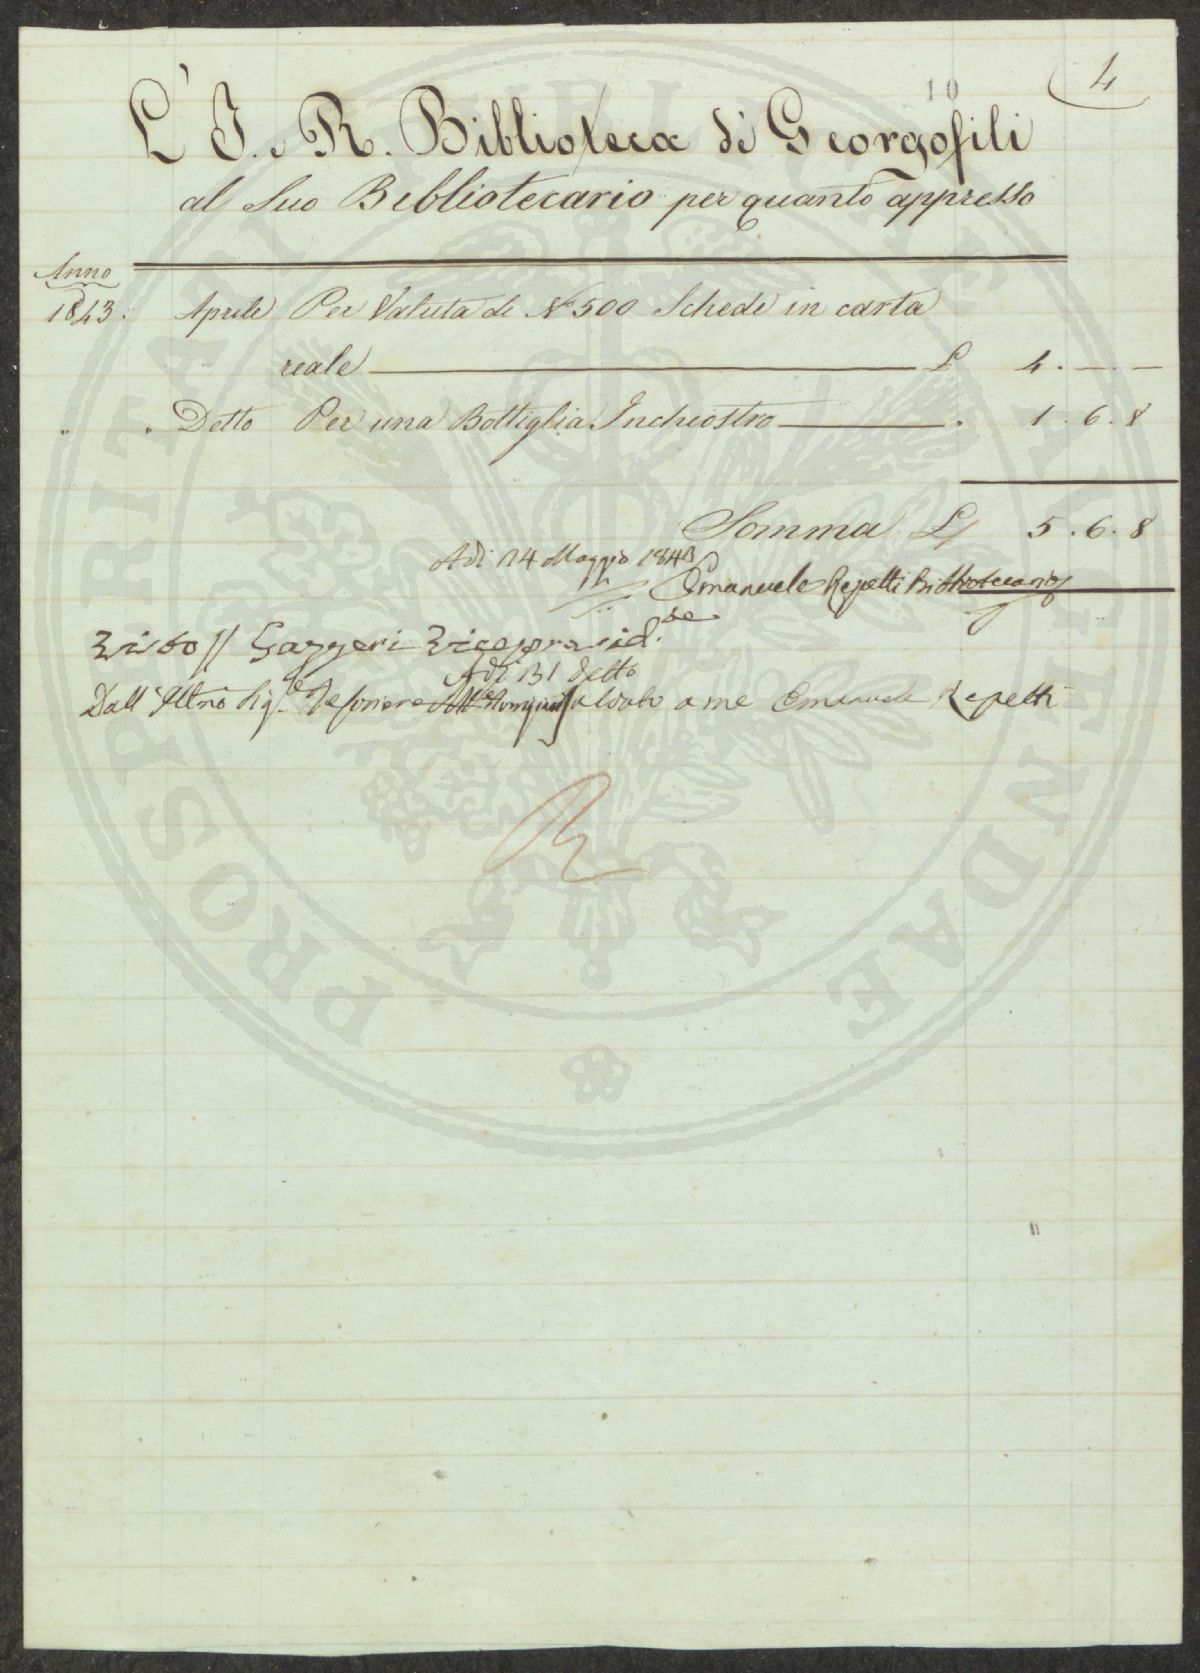 4
10
L' I. e R. Biblioteca dè Georgofili
al Suo Bibliotecario per quanto appresso
Anno
1843. Aprile Per Valuta di N° 500 Schede in carta
reale £ 4.-.-
" " Detto Per una Bottiglia Inchiostro " 1.6.8
Somma £ 5.6.8
Adi 14 Maggio 1843
Emanuele Repetti Bibliotecario
Visto // Gazzeri Vicepresid.te
Adi 31 detto
Dall' Ill.mo Sig.re Tesoriere saldato a me Emanuele Repetti
R
PROSPERITATI PUBLICAE AUGENDAE